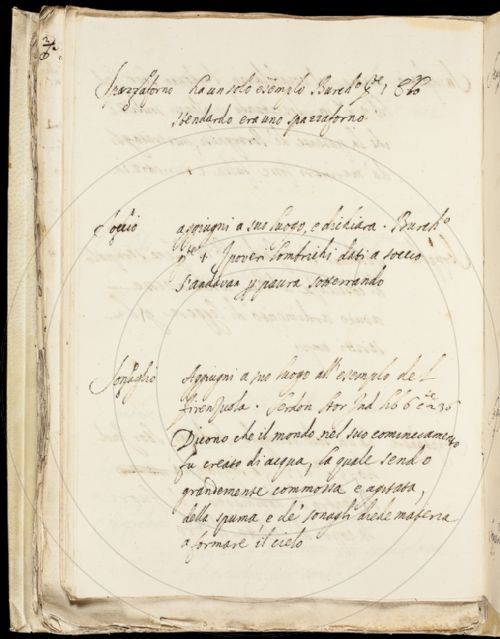 Spazzaforno ha un solo esempio Burch.º p.te 1 E lo
stendardo era uno spazzaforno
Soccio aggiugni a suo luogo, e dichiara. Burch.º
p.te I poveri lombrichi dati a soccio
s'andavan p paura sotterrando
Sonaglio Aggiugni a suo luogo all'esempio del
Firenzuola. Serdon. stor. Ind. lib. 6
Dicono che il mondo nel suo cominciamento
fu creato di acqua, la quale sendo
grandemente commossa e agitata,
della spuma, e de' sonagli diede materia
a formare il cielo